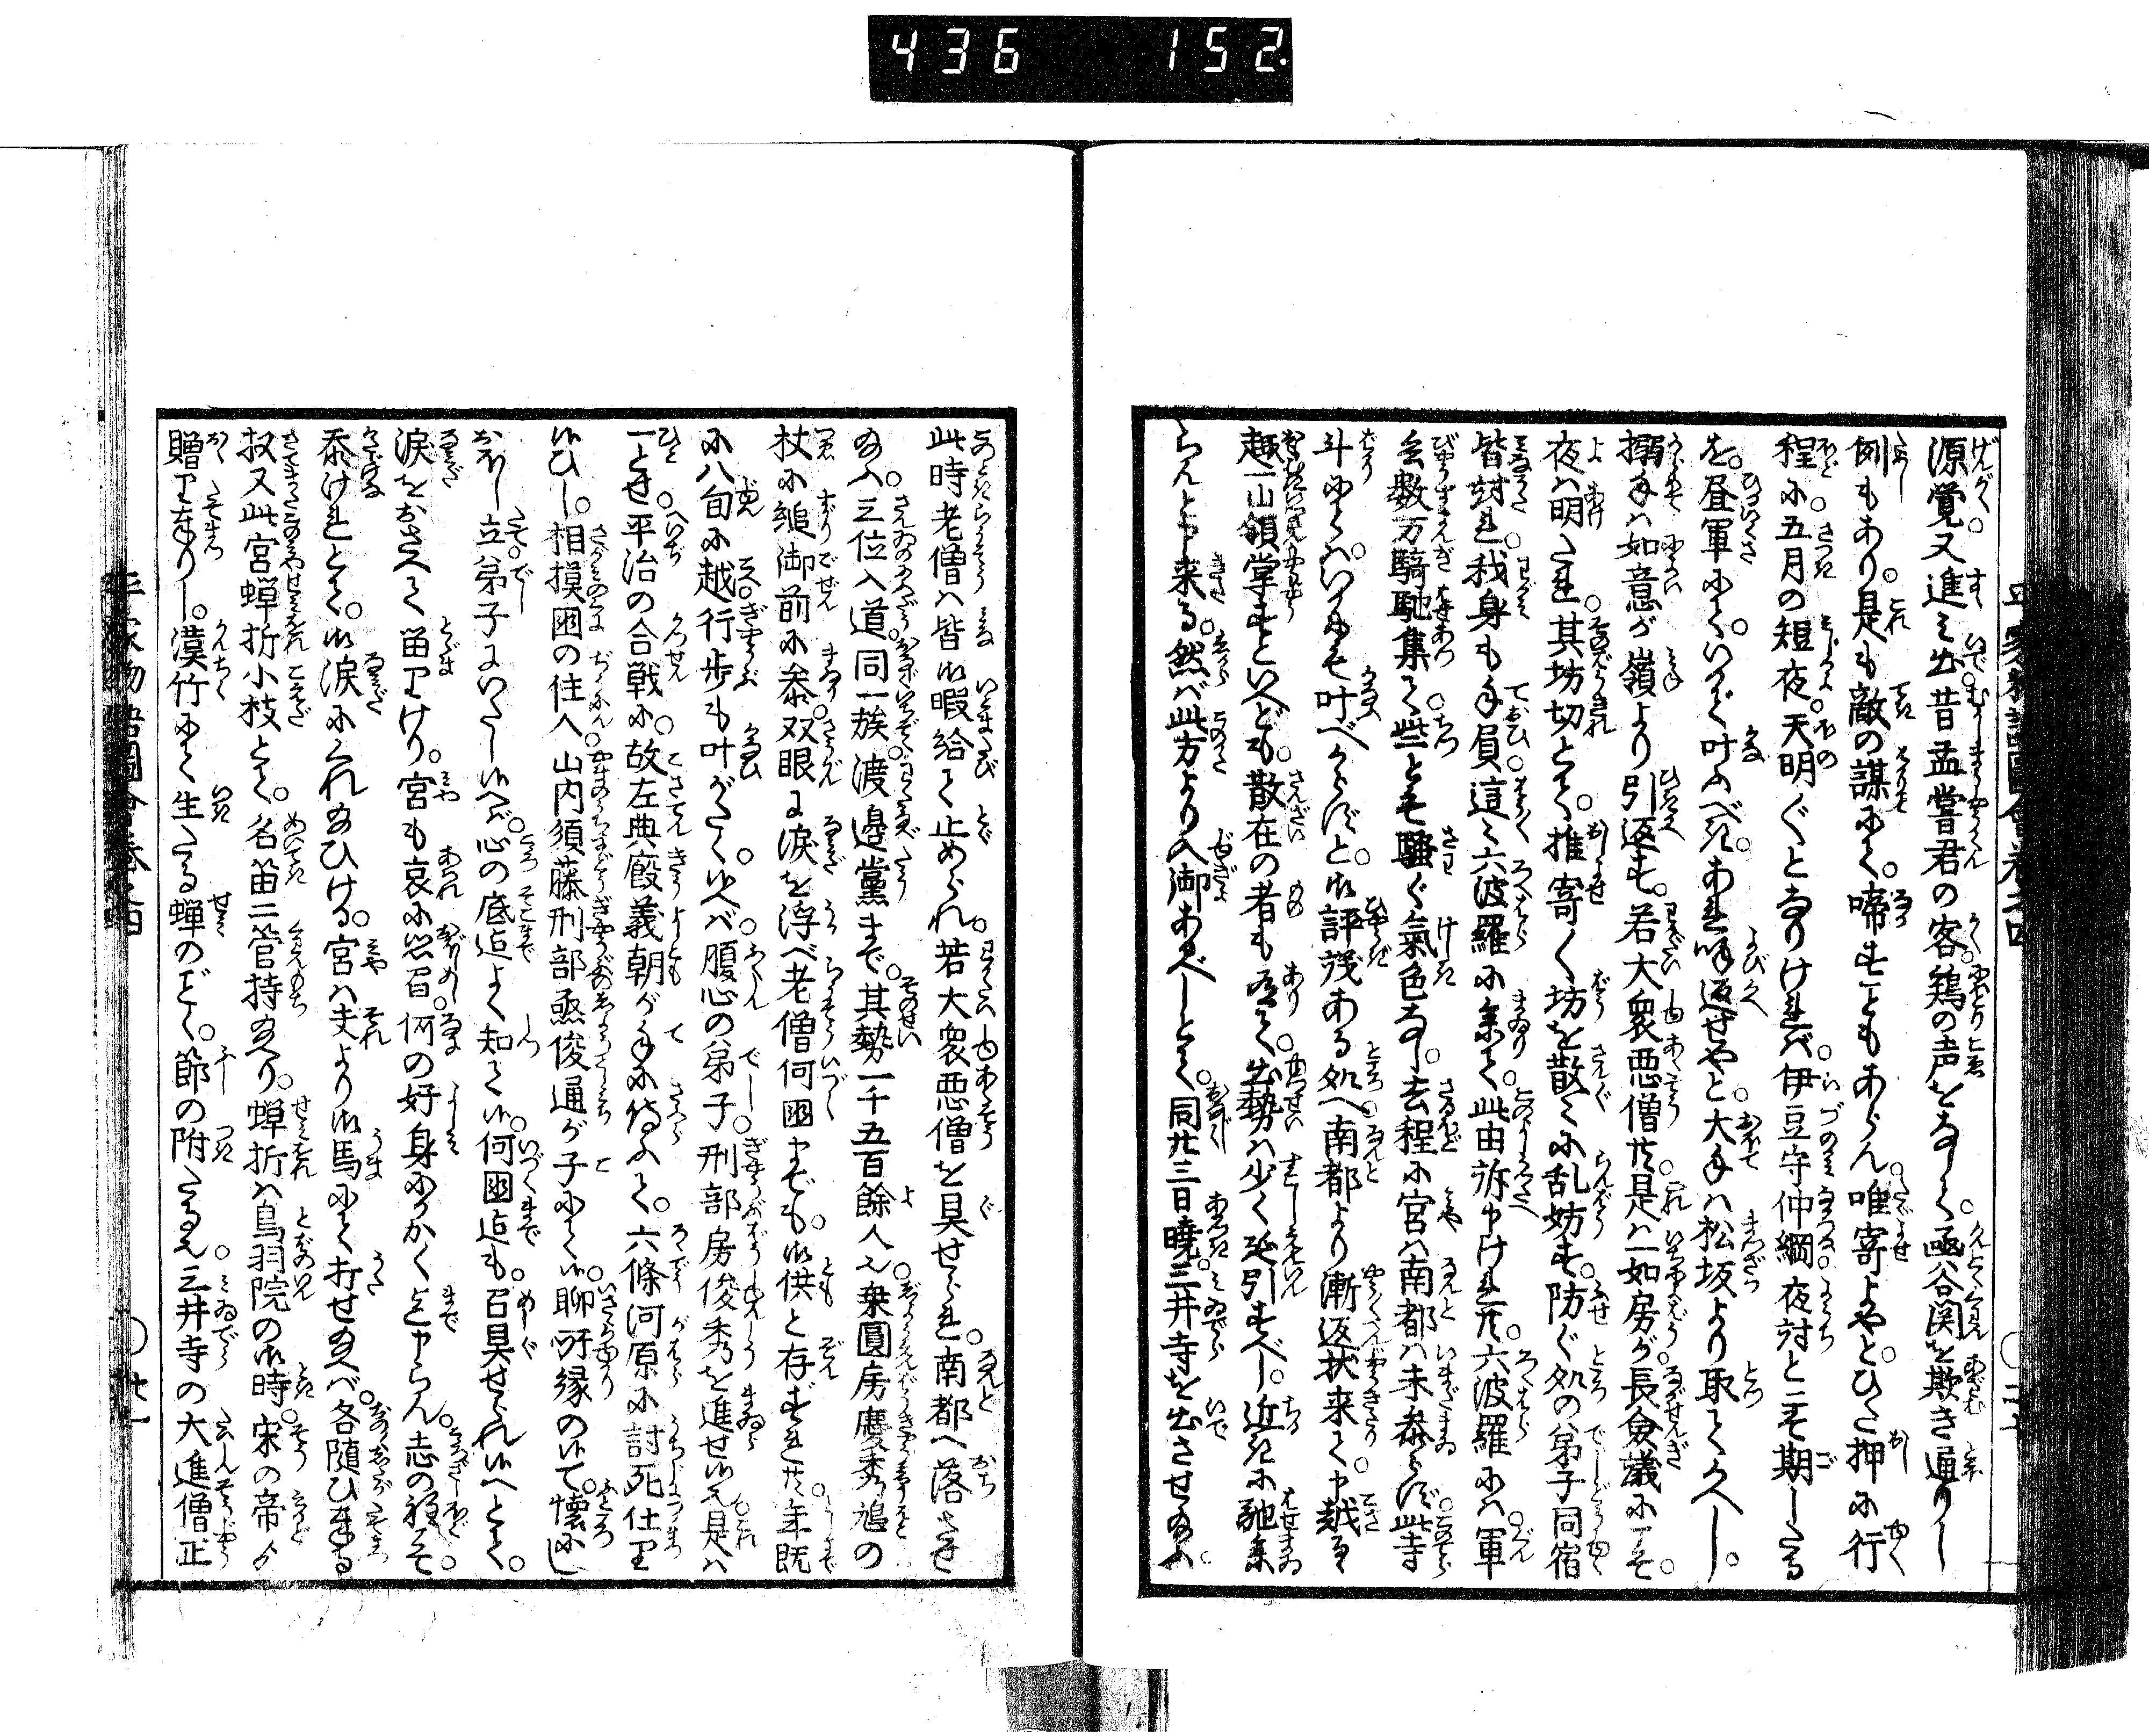 436 152
源覚又進み出昔孟嘗君の客鶏の声をなして函谷関を欺き通りし
例もあり。是も敵の謀にて。啼すこともあらん。唯寄よやと。ひた押に行
程に。五月の短夜。天明ぐとなりければ。伊豆守仲綱夜討とこそ期したる
を。昼軍にてハ。いかで叶ふべき。あれ呼返せやと。大手ハ松坂より取てかへし。
搦手ハ如意が嶺より引返す。若大衆悪僧共。是ハ一如房が長僉議にこそ。
夜ハ明たれ。其坊切とて。推寄て坊を散々に乱妨す。防ぐ処の弟子同宿
皆討れ。我身も手負。這々六波羅に参て。此由訴申けれ共。六波羅にハ。軍
兵数万騎馳集て。些とも騒ぐ気色なし。去程に宮ハ南都ハ未参らず。此寺
斗にてハ。いかにも叶べからずと。御評議ある処へ。南都より漸返状来て。申越
趣一山領掌すといへども。散在の者も有て。出勢ハ少く延引すべし。近きに馳参
らんと申来る。然バ此方より入御あるべしとて。同廿三日暁。三井寺を出させ給ふ。
此時老僧ハ皆御暇給て止められ。若大衆悪僧を具せられ。南都へ落させ
給ふ。三位入道同一族渡邉黨まで。其勢一千五百餘人也。乗圓房慶秀鳩の
杖に縋。御前に参。双眼に涙を浮べ。老僧何国までも。御供と存ずれ共。年既
に八旬に越。行歩も叶がたく候へバ。腹心の弟子。刑部房俊秀を進せ候。是ハ
一とせ平治の合戦に。故左典廐義朝が手に候ふて。六條河原に討死仕り
候ひし。相摸国の住人山内須藤刑部丞俊通が子にて候。聊所縁の候て。懐に
おほし立弟子にいたし候へバ。心の底迄よく知て候。何国迄も。召具せられ候へとて。
涙をおさへて留りけり。宮も哀に思召。何の好身にかくまで申らん。志の程こそ。
忝けれとて。御涙にくれ給ひける。宮ハ夫より御馬にて打せ給へバ。各随ひ奉る
扨又此宮蝉折小枝とて。名笛二管持給へり。蝉折ハ鳥羽院の御時。宋の帝より
贈り奉りし。漢竹にて生たる蝉のごとく。節の附たる也。三井寺の大進僧正
平家物語圖會巻之四
廿一